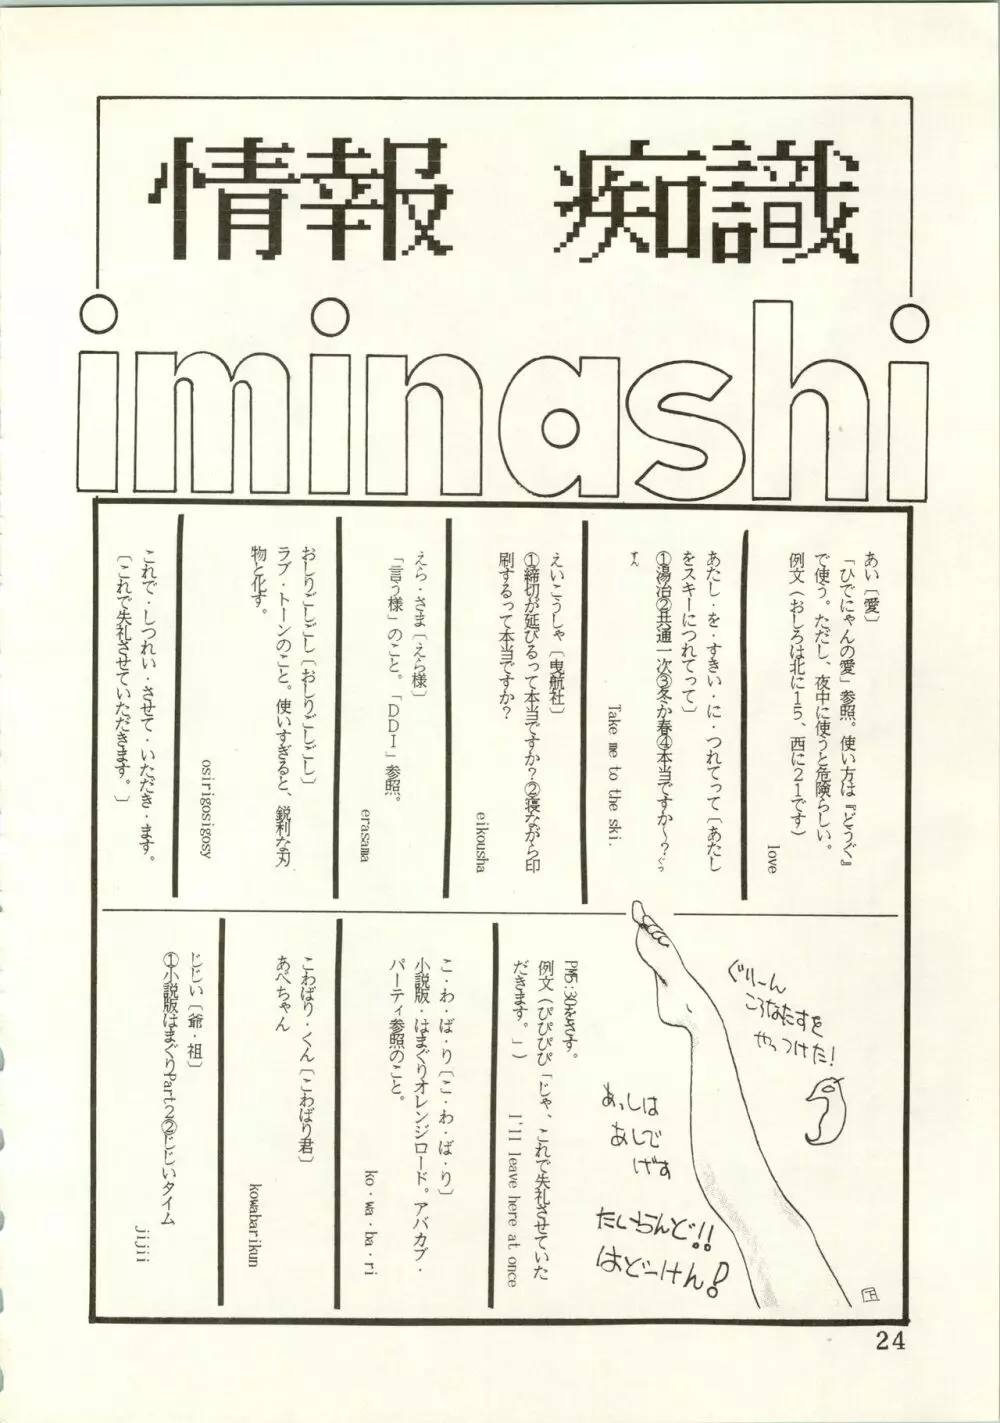 情報 痴識
iminashi
あい〔愛〕
「ひでにゃんの愛」参照。使い方は『どうぐ』
で使う。ただし、夜中に使うと危険らしい。
例文(おしろは北に15、西に21です)
love
あたし・を・すきい・に・つれてって〔あたし
をスキーにつれてって〕
①湯治②共通一次③冬か春④本当ですか〜?ぐっ
すん
Take me to the ski.
えいこうしゃ〔曳航社〕
①締切が延びるって本当ですか?②寝ながら印
刷するって本当ですか?
eikousha
えら・さま〔えら様〕
「言う様」のこと。「DDI」参照。
erasama
おしりごしごし〔おしりごしごし〕
ラブ・トーンのこと。使いすぎると、鋭利な刃
物と化す。
osirigosigosy
これで・しつれい・させて・いただき・ます。
〔これで失礼させていただきます。〕
PM5:30をさす。
例文(ぴぴぴぴ「じゃ、これで失礼させていた
だきます。」)
I'll leave here at once
こ・わ・ば・り〔こ・わ・ば・り〕
小説版・はまぐりオレンジロード。アバカブ・
パーティ参照のこと。
ko・wa・ba・ri
こわばり・くん〔こわばり君〕
あべちゃん
kowabarikun
じじい〔爺・祖〕
①小説版はまぐりPart2②じじいタイム
jijii
ぐりーん
ころなたすを
やっつけた!
あっしは
あしで
げす
たいらんど!!
はどーけん!
24